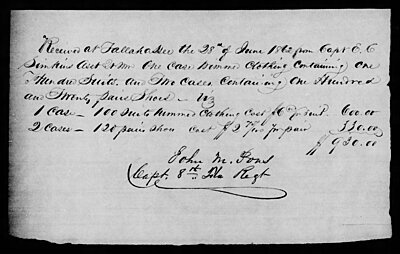 Received at Tallahassee the 28th of June 1862 from Capt E. C.
Simkins Asst Qr Mr. One Case Summer Clothing Containing One
Hundred Suits. and Two Cases Containing One Hundred
and Twenty pairs Shoes — Viz
1 Case — 100 Suits Summer Clothing Cost $6 pr Suit. 600.00
2 Cases — 120 pairs Shoes Cost $2 75/100 pr pair 330.00
$930.00
John M. Pons
Capt. 8th Fla Regt